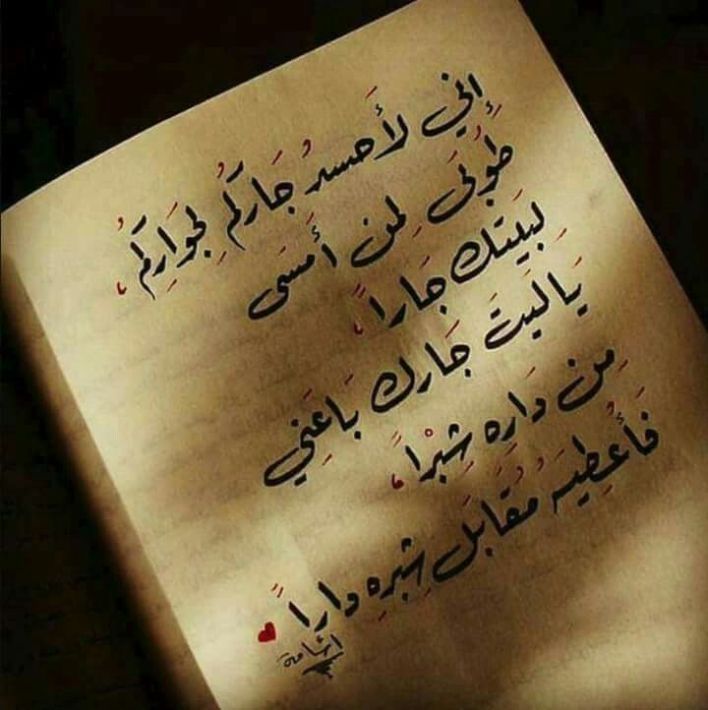 إِني لَأحسدُ جَاركُم لِجوَارِكُم،
طُوبَى لِمن أَمسَى
لِبَيتَك جَاراً،
يَا ليتَ جَارك بَاعَنِي
مِن دَارِه شِبْراً،
فَأُعطِيه مُقَابَل شِبرِه داراً